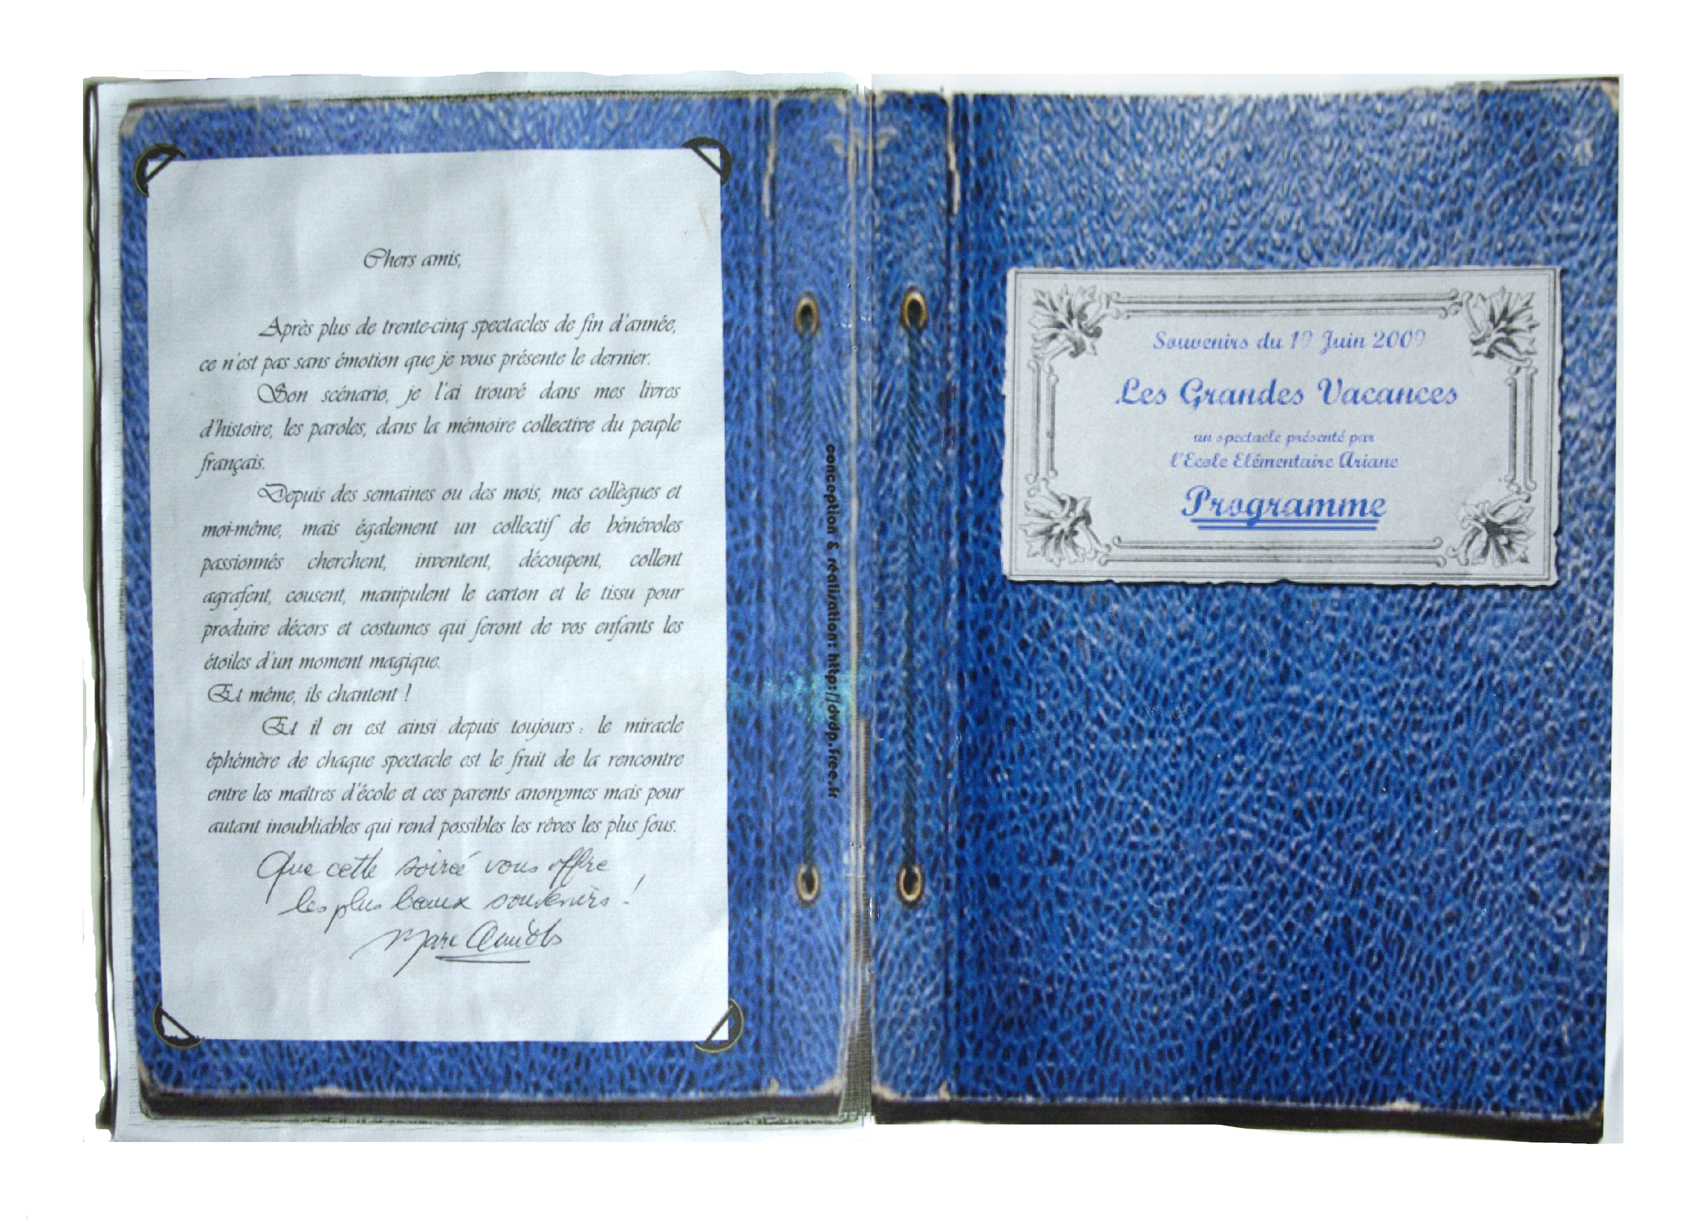 Chers amis,
Après plus de trente-cinq spectacles de fin d'année,
ce n'est pas sans émotion que je vous présente le dernier.
Son scénario, je l'ai trouvé dans mes livres
d'histoire, les paroles, dans la mémoire collective du peuple
français.
Depuis des semaines ou des mois, mes collègues et
moi-même, mais également un collectif de bénévoles
passionnés cherchent, inventent, découpent, collent
agrafent, cousent, manipulent le carton et le tissu pour
produire décors et costumes qui feront de vos enfants les
étoiles d'un moment magique.
Et même, ils chantent !
Et il en est ainsi depuis toujours : le miracle
éphémère de chaque spectacle est le fruit de la rencontre
entre les maîtres d'école et ces parents anonymes mais pour
autant inoubliables qui rend possibles les rêves les plus fous.
Que cette soirée vous offre
les plus beaux souvenirs !
Marc
conception & réalisation : http://dvdp.free.fr
Souvenirs du 19 Juin 2009
Les Grandes Vacances
un spectacle présenté par
l'Ecole Elémentaire Ariane
Programme